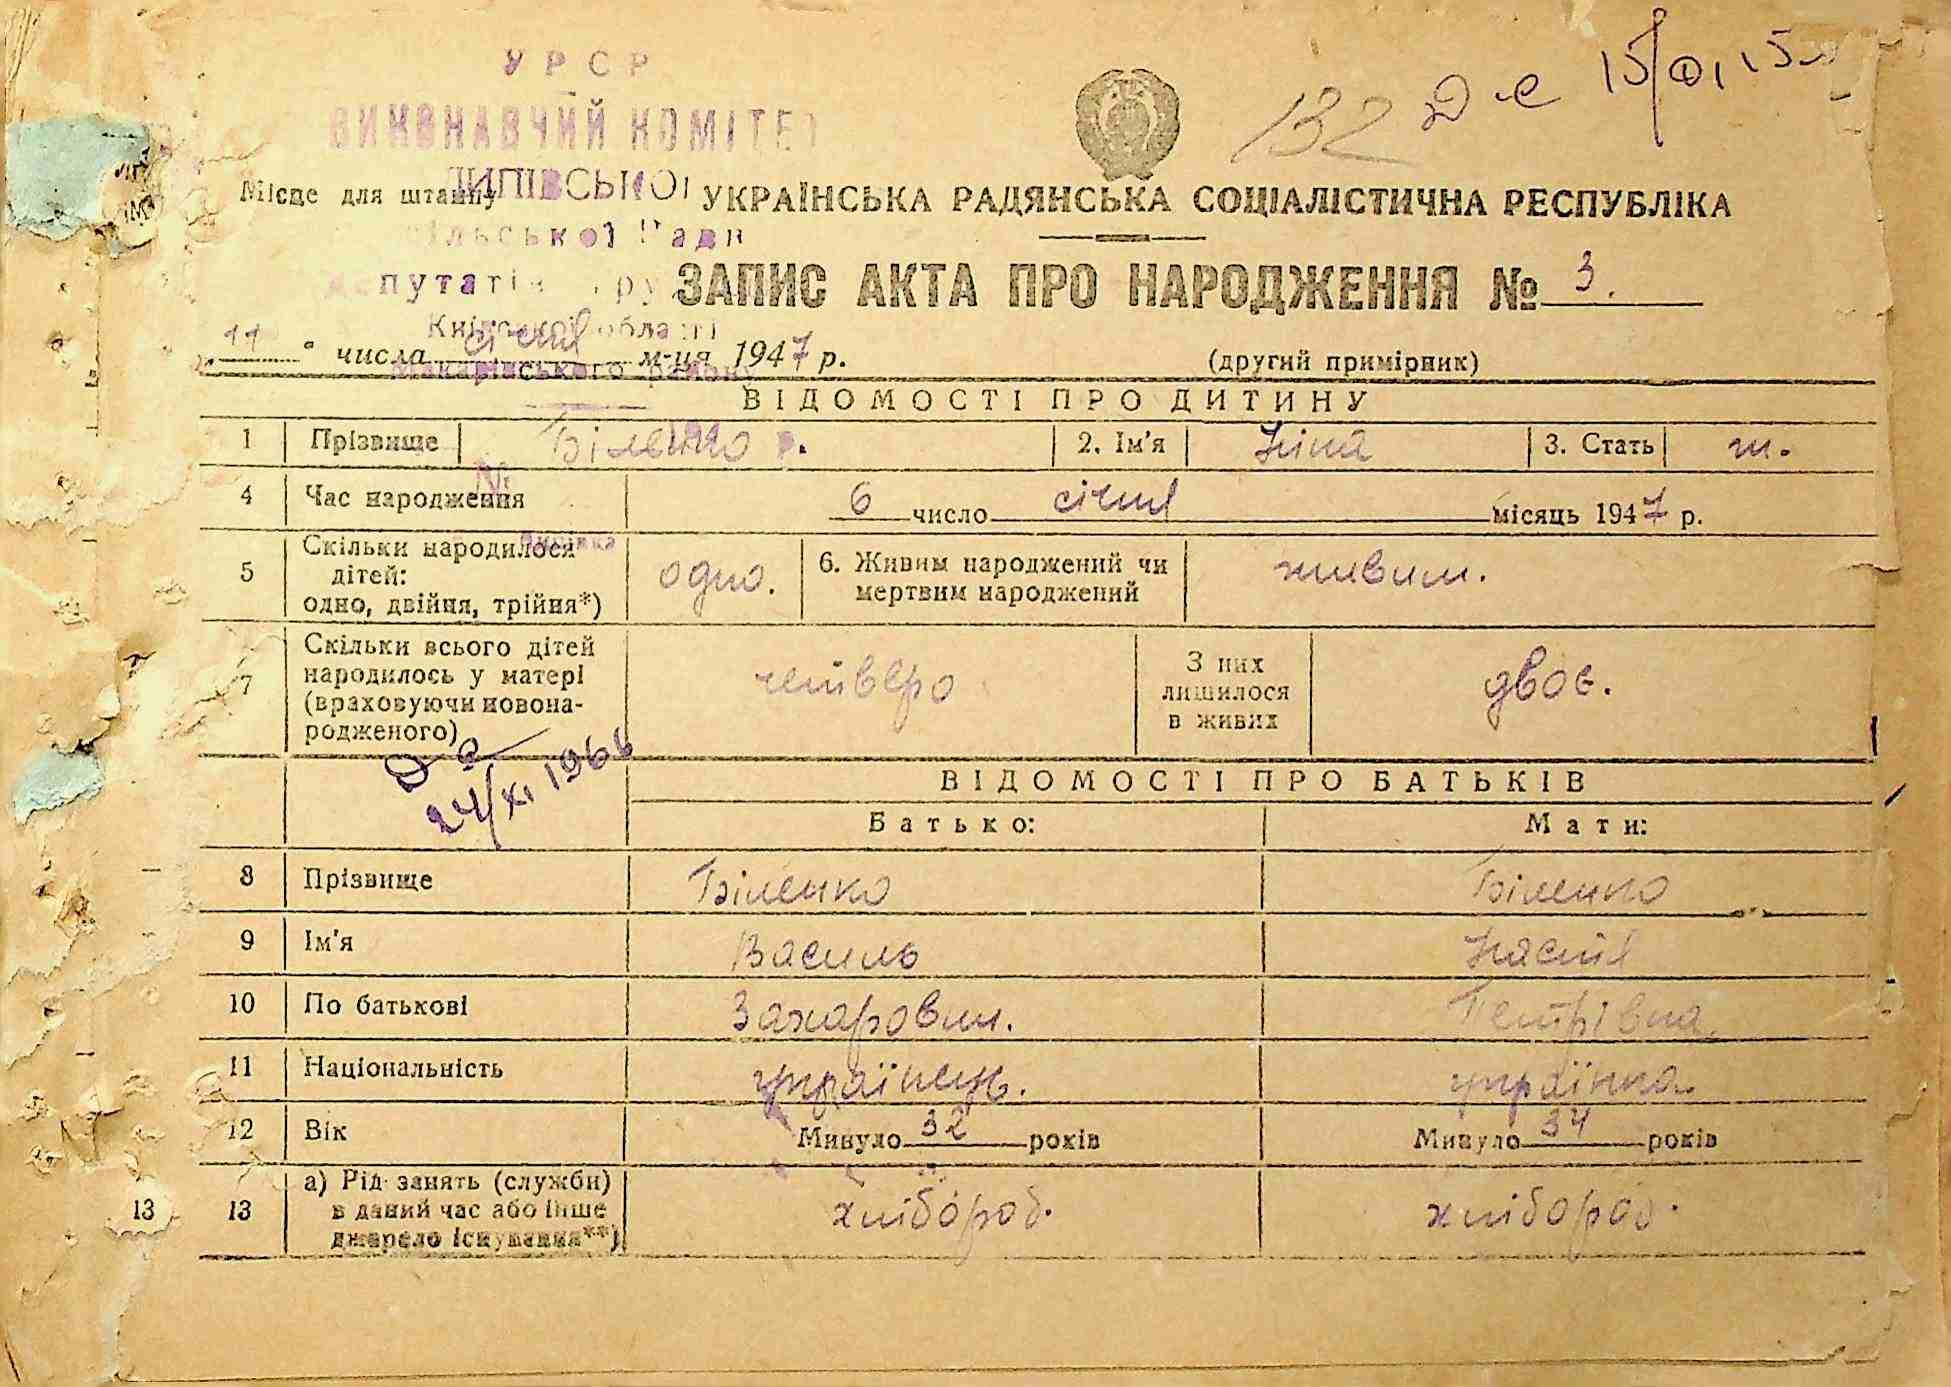 УРСР
ВИКОНАВЧИЙ КОМІТЕТ
ЛИПІВСЬКОЇ
сільської Ради
депутатів
Київської області
Макарівського району
132 15/VI 15
Місце для штампу
УКРАЇНСЬКА РАДЯНСЬКА СОЦІАЛІСТИЧНА РЕСПУБЛІКА
ЗАПИС АКТА ПРО НАРОДЖЕННЯ № 3.
„11" числа січня м-ця 1947 р. (другий примірник)
ВІДОМОСТІ ПРО ДИТИНУ
1 Прізвище Біленко 2. Ім'я Ніна 3. Стать ж.
4 Час народження 6 число січня місяць 1947 р.
5 Скільки народилося дітей: одно, двійня, трійня*) одно. 6. Живим народжений чи мертвим народжений живим.
7 Скільки всього дітей народилось у матері (враховуючи новонародженого) четверо З них лишилося в живих двоє.
24/XI 1966
ВІДОМОСТІ ПРО БАТЬКІВ
Батько: Мати:
8 Прізвище Біленко Біленко
9 Ім'я Василь Настя
10 По батькові Захарович. Петрівна.
11 Національність українець. українка.
12 Вік Минуло 32 років Минуло 34 років
13 13 а) Рід занять (служби) в даний час або інше джерело існування**) хлібороб. хлібороб.